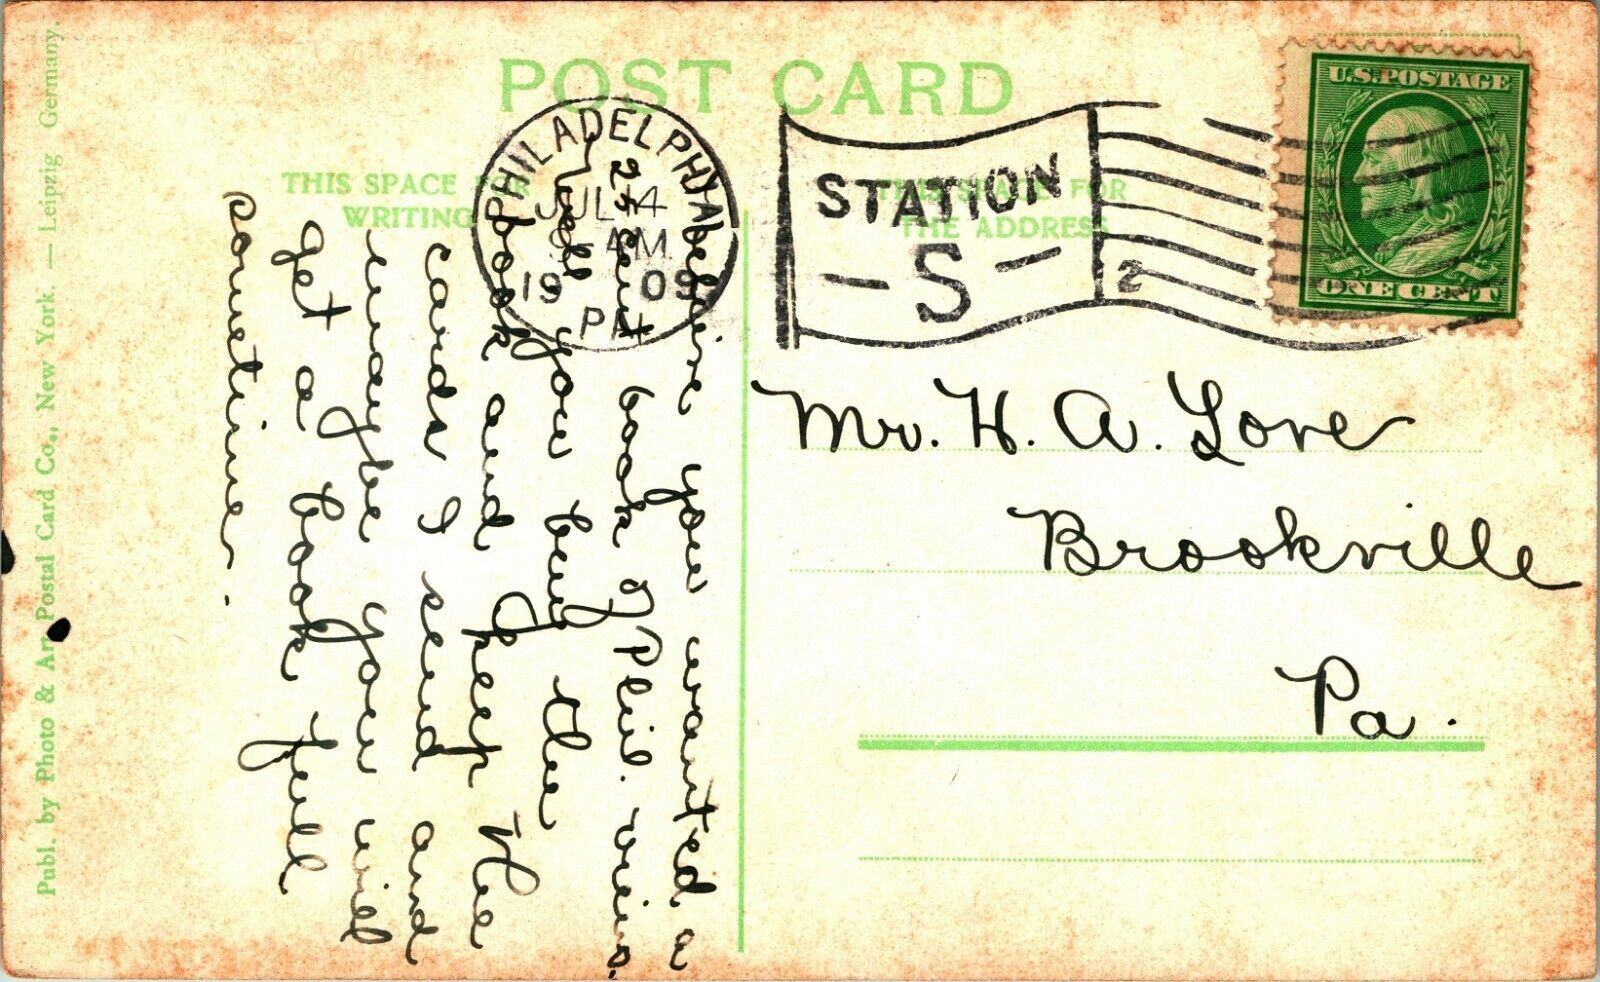 POST CARD
THIS SPACE FOR
WRITING
THIS SPACE FOR
THE ADDRESS
PHILADELPHIA
JUL 4
AM
1909
PA
STATION
- S -
2
U.S. POSTAGE
ONE CENT
Mr. H. A. Love
Brookville
Pa.
I believe you wanted a
25 cent book of Phil. views.
Well you buy the
book and keep the
cards I send and
maybe you will
get a book full
sometime.
Publ. by Photo & Art Postal Card Co., New York. — Leipzig Germany.